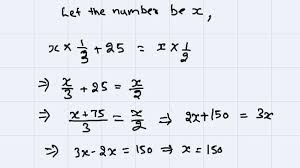 Let the number be x,
x × 1/3 + 25 = x × 1/2
⇒ x/3 + 25 = x/2
⇒ (x+75)/3 = x/2 ⇒ 2x+150 = 3x
⇒ 3x-2x = 150 ⇒ x = 150